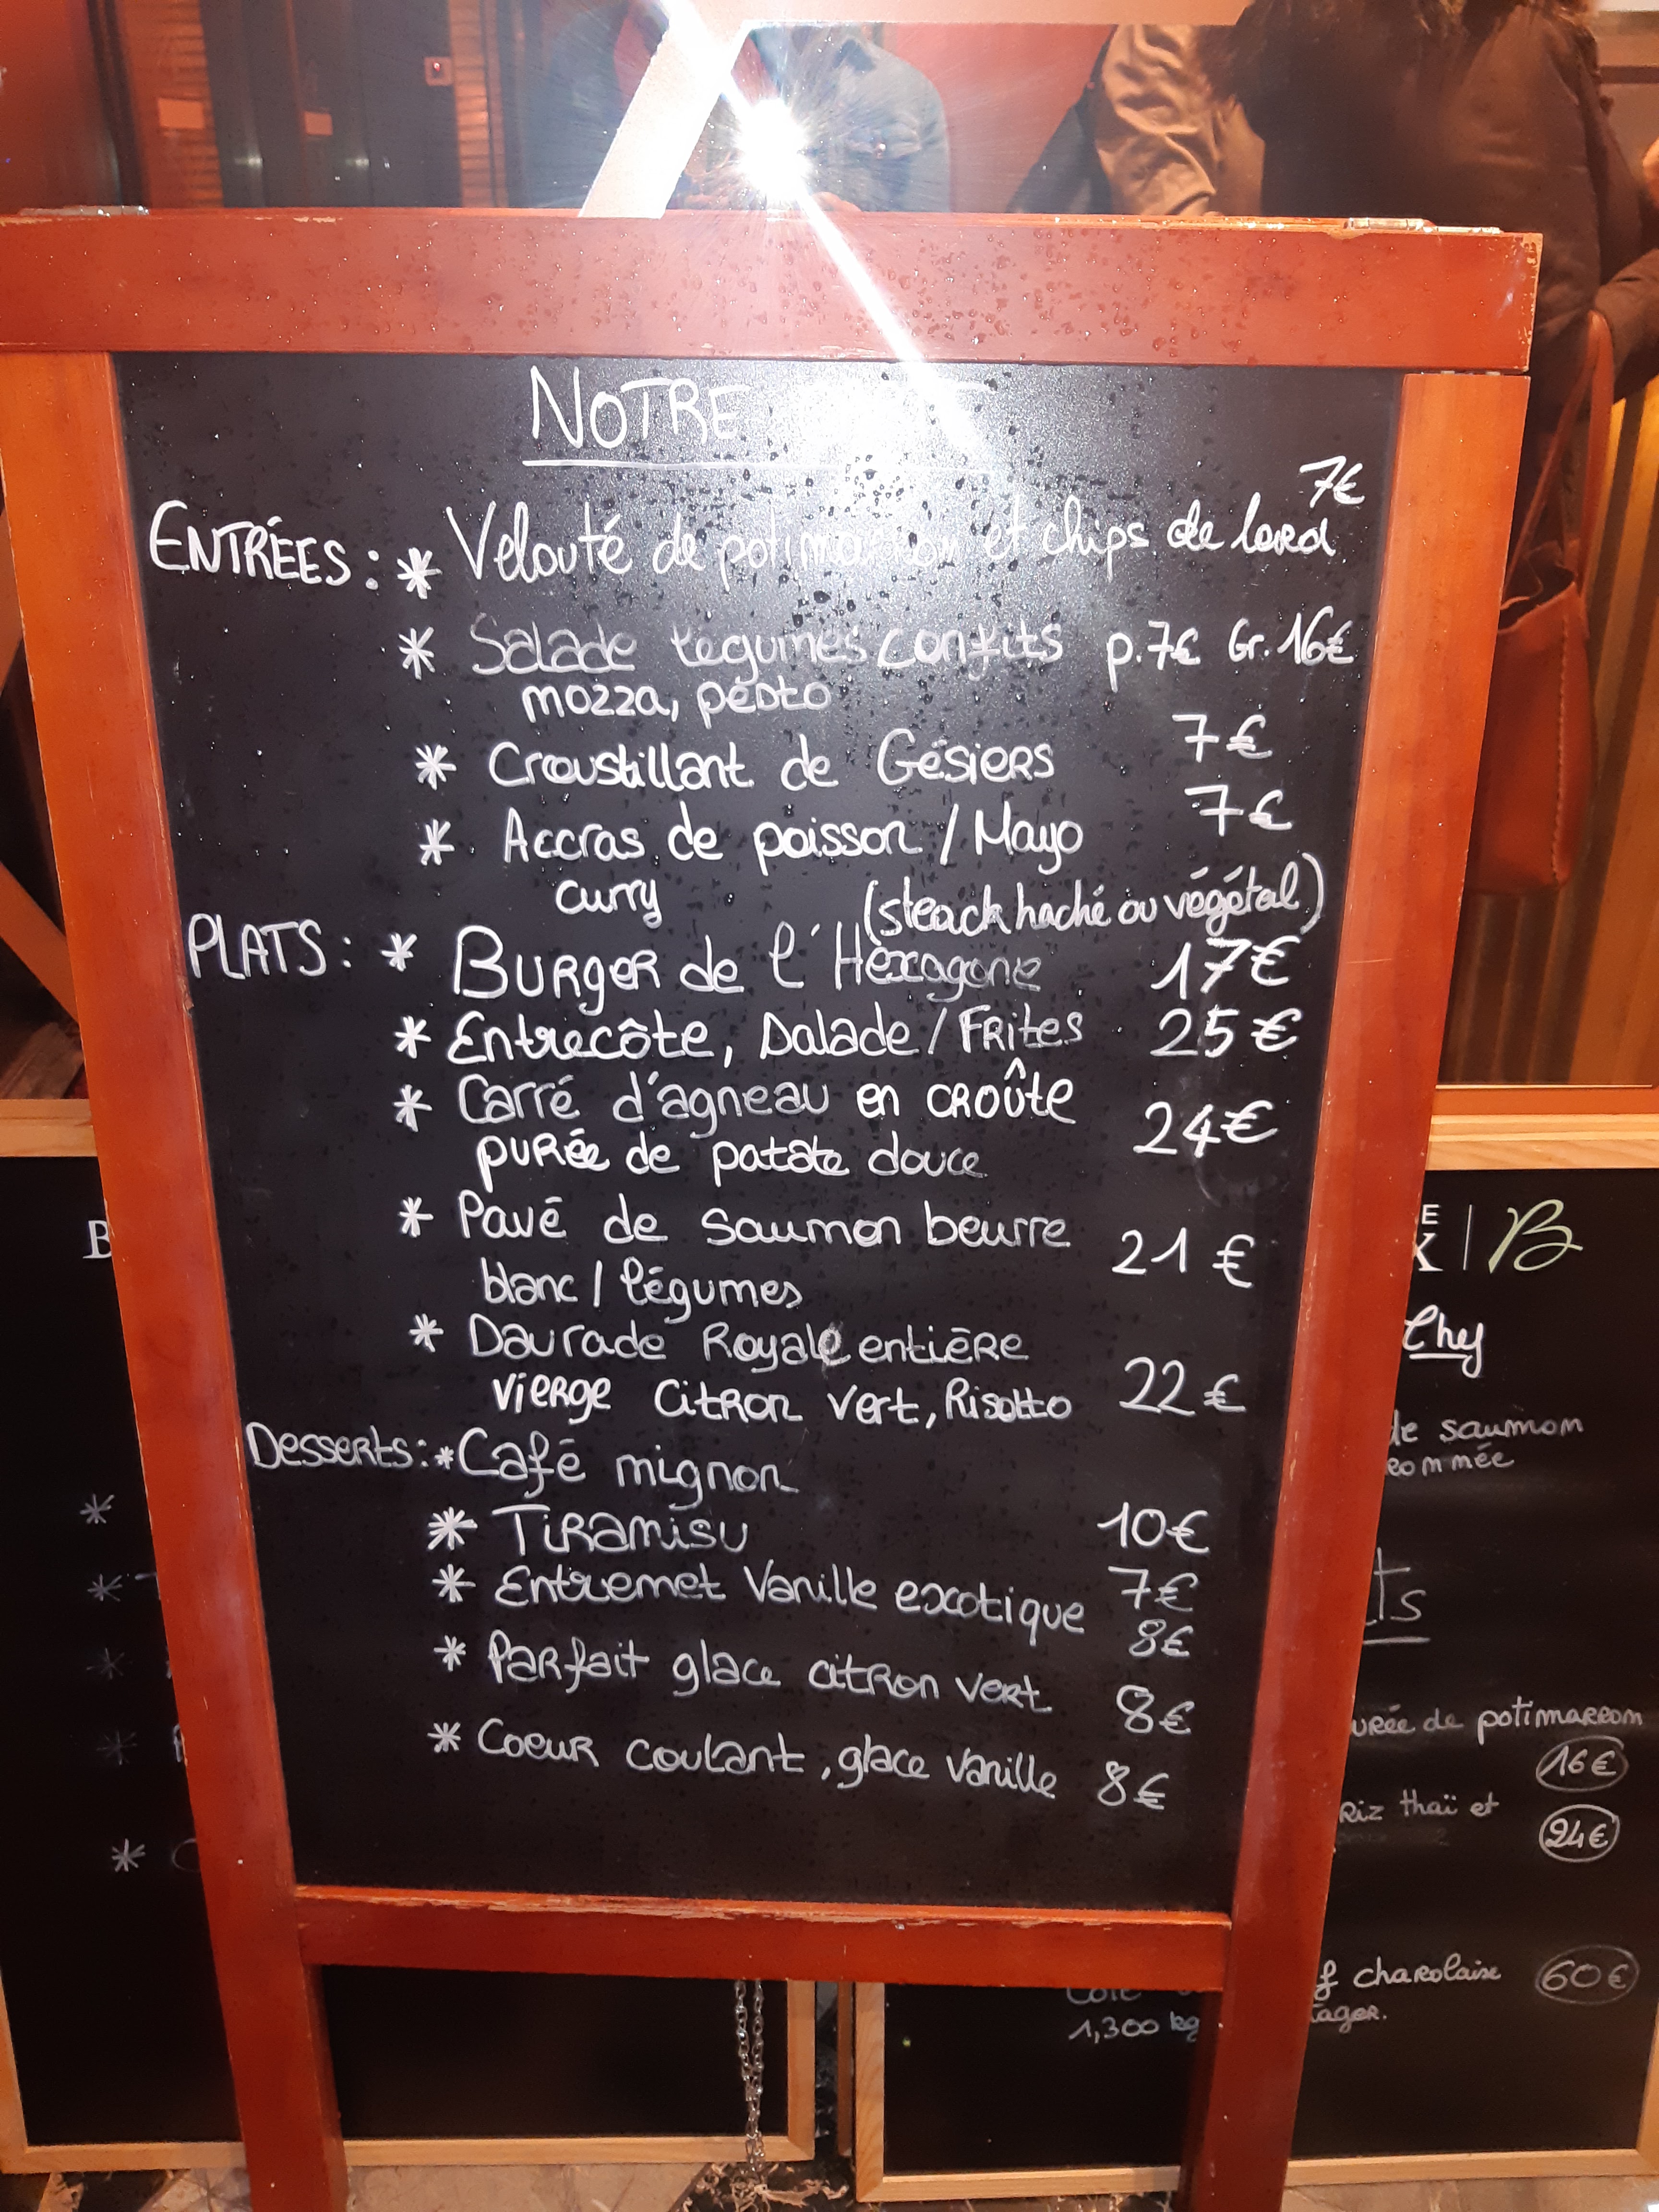 NOTRE
7€
ENTRÉES : * Velouté de potimarron et chips de lard
* Salade légumes confits p.7€ Gr.16€
mozza, pesto
* Croustillant de Gésiers 7€
* Accras de poisson / Mayo 7€
curry (steack haché ou végétal)
PLATS : * BURGER de l'Hexagone 17€
* Entrecôte, Salade / FRites 25€
* Carré d'agneau en CROÛte
puRée de patate douce 24€
* Pavé de saumon beurre
blanc / légumes 21€
* Daurade Royale entière
vierge citron vert, Risotto 22€
Desserts : * Café mignon
* TiRamisu 10€
* Entremet Vanille exotique 7€
8€
* Parfait glace citron vert 8€
* Coeur coulant, glace vanille 8€
B
E
X | B
Chef
de saumon
ts
urée de potimarron
16€
Riz thaï et
24€
charolaise 60€
1,300 kg tager.